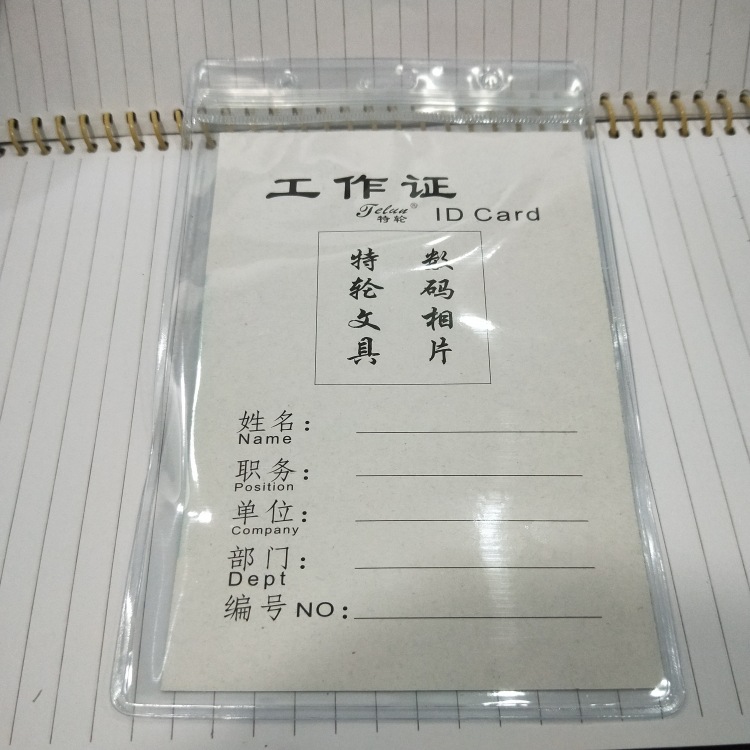 工作证
Telun®
特轮
ID Card
数码相片
特轮文具
姓名：
Name
职务：
Position
单位：
Company
部门：
Dept
编号 NO：